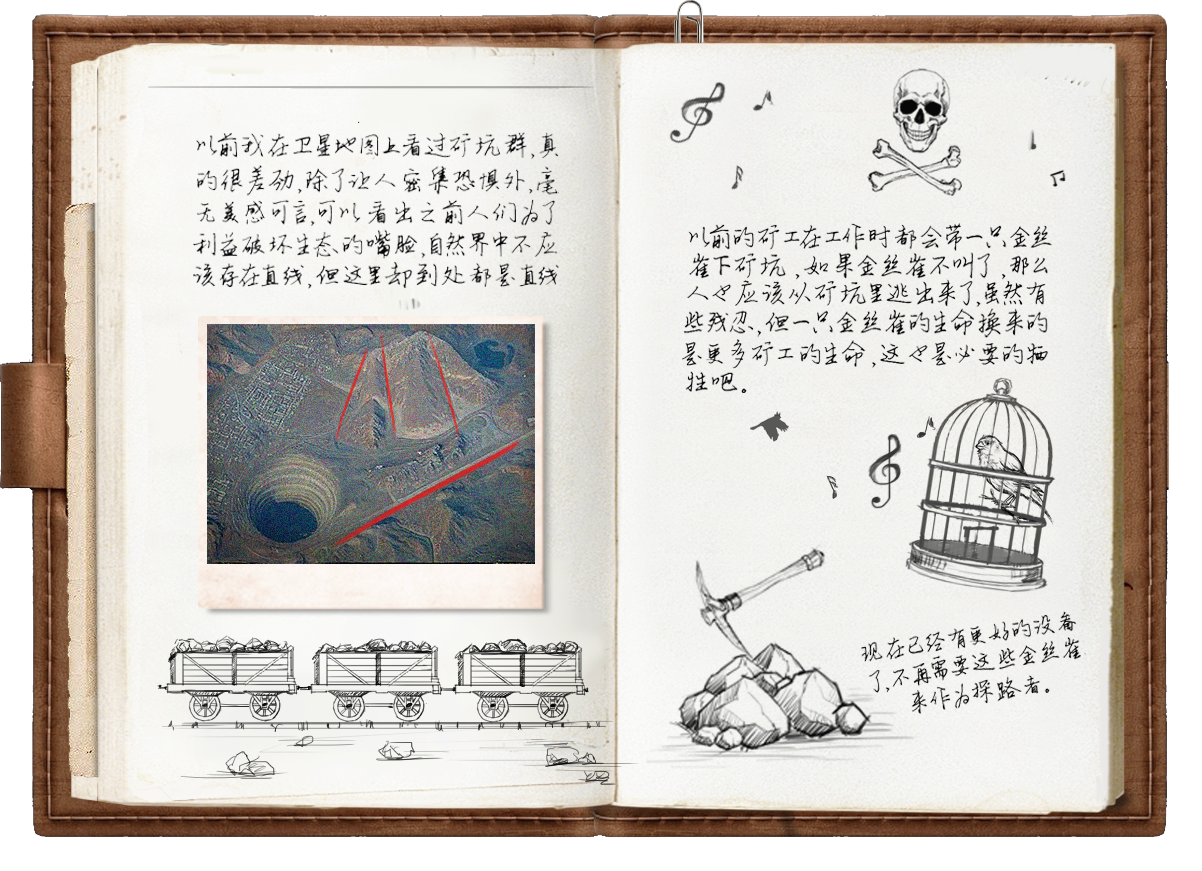 以前我在卫星地图上看过矿坑群,真
的很差劲,除了让人密集恐惧外,毫
无美感可言,可以看出之前人们为了
利益破坏生态的嘴脸,自然界中不应
该存在直线,但这里却到处都是直线
以前的矿工在工作时都会带一只金丝
雀下矿坑,如果金丝雀不叫了,那么
人也应该从矿坑里逃出来了,虽然有
些残忍,但一只金丝雀的生命换来的
是更多矿工的生命,这也是必要的牺
牲吧。
现在已经有更好的设备
了,不再需要这些金丝雀
来作为探路者。